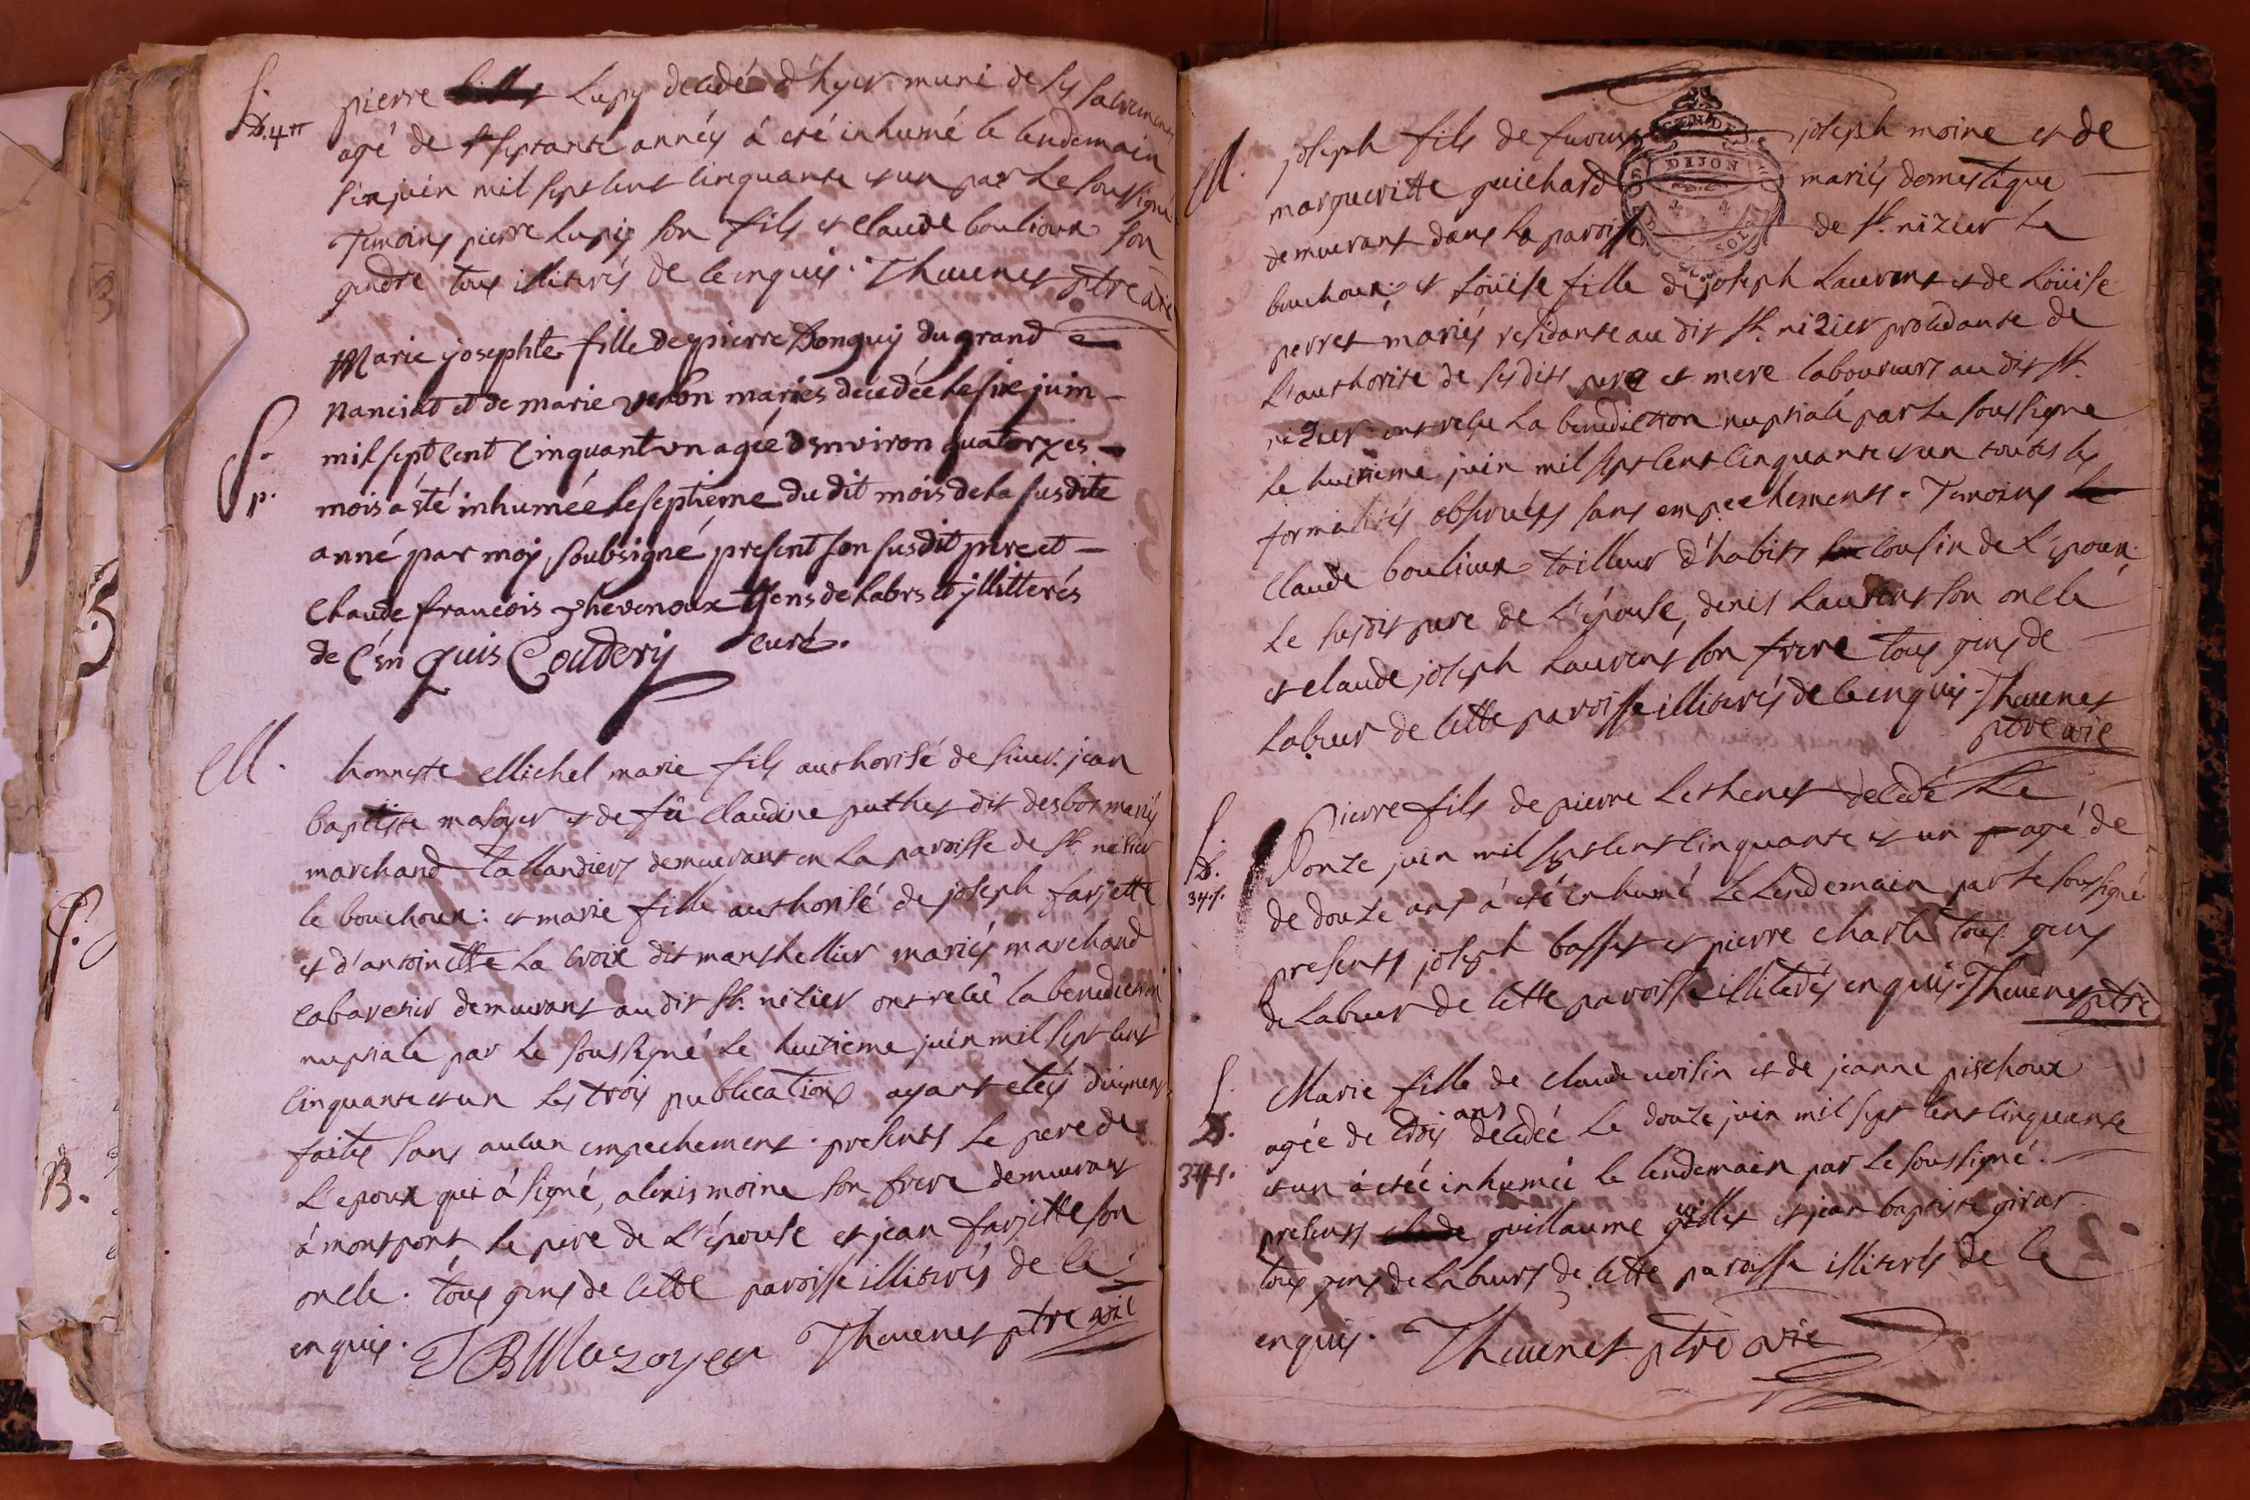 S.
D. 4π
pierre Lupy decedé d'hyer muni de ses sacremens
agé de septante années á eté inhumé le lendemain
six juin mil sept cent cinquante et un par le soussigné
Temoins pierre Lupy son fils et Claude boulioux son
gendre tous illiterés de ce enquis. Thevenet ptre vic
Marie josephte fille de pierre Donguy du grand
nanciat et de marie verbon mariés décédée le six juin
mil sept cent cinquant un agée d'environ quatorzes
S.
P.
mois á été inhumée le septieme du dit mois de la susdite
anné par moy soubsigné present son susdit pere et
Claude francois Thevenoux gens de labrs et yllitterés
de c'en quis Coudery curé.
M.
honneste Michel marie fils authorisé de sieur jean
baptiste masoyer et de fû Claudine puthet dit desbos mariés
marchand tallandiers demeurant en la paroisse de St. nésier
le bouchoux: et marie fille authorisé de joseph farjette
et d'antoinette la croix dit manthellier mariés marchand
cabaretier demeurant au dit St. nézier ont recû la benediction
nuptiale par le soussigné le huitieme juin mil sept cent
cinquante et un les trois publications ayant etés duement
faites sans aucun empechement. presents le pere de
l'epoux qui á signé, alexis moine son frere demeurant
á montpont le pere de l'épouse et jean farjette son
oncle. tous gens de cette paroisse illiterés de ce
enquis. JB Mazoyer Thevenet ptre vic
M.
joseph fils de furent joseph moine et de
DIJON
margueritte guichard mariés domestique
demeurant dans la paroisse de St. nizier le
bouchoux; et Loüise fille de joseph Laurent et de Loüise
perret mariés residante au dit St. nizier procedante de
l'authorité de ses dits pere et mere laboureurs au dit St.
nizier ont reçu la benediction nuptiale par le soussigné
le huitieme juin mil sept cent cinquante et un toutes les
formalités observées sans empechements. Temoins
Claude boulioux tailleur d'habits cousin de l'epoux
le susdit pere de l'épouse, denis Laurent son oncle
et claude joseph Laurent son frere tous gens de
labeur de cette paroisse illiterés de ce enquis. Thevenet
ptre vic
S.
D.
Pierre fils de pierre Lethenet decedé le
onze juin mil sept cent cinquante et un agé de
de douze ans á eté inhumé le lendemain par le soussigné
presents joseph basset et pierre charle tous gens
de labeur de cette paroisse illiterés enquis. Thevenet ptre
S.
D.
Marie fille de claude voisin et de jeanne pischoux
agée de trois ans decedée le douze juin mil sept cent cinquante
et un á etée inhumée le lendemain par le soussigné.
presents guillaume gillet et jean baptiste girar
tous gens de labeurs de cette paroisse illiterés de ce
enquis. Thevenet ptre vic